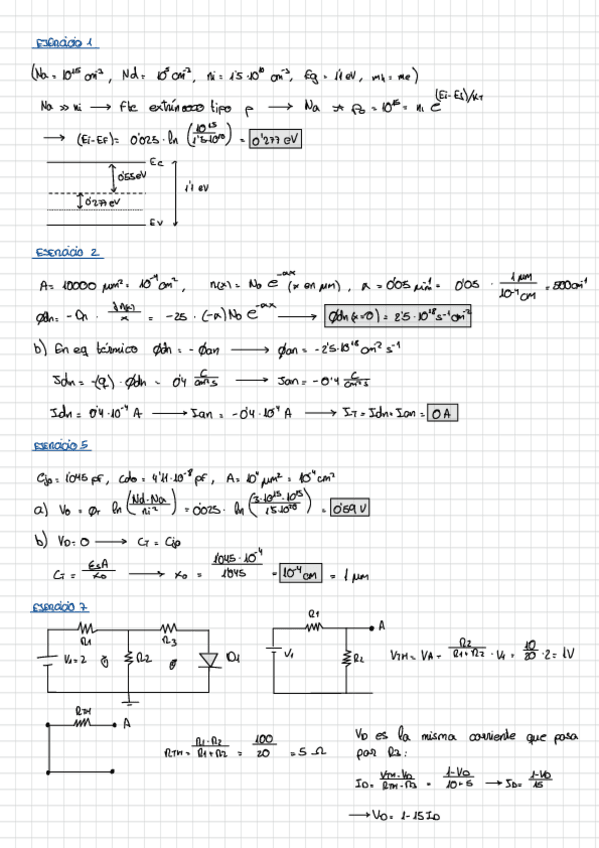 EJERCICIO 1
(Na = 10^15 cm^-3, Nd = 10^5 cm^-3, ni = 1'5·10^10 cm^-3, Eg = 1'1 eV, mh = me)
Na >> ni → extrínseco tipo p → Na ≈ po = 10^15 = ni e^(Ei-Ef)/KT
→ (Ei-EF) = 0'025 · ln (10^15 / 1'5·10^10) = 0'277 eV
Ec
0'55 eV
1'1 eV
0'277 eV
Ev
EJERCICIO 2
A = 10000 μm² = 10^-4 cm², n(x) = No e^-ax (x en μm), a = 0'05 μm^-1 = 0'05 · 1 μm / 10^-4 cm = 500 cm^-1
Φdn = -Dn · dn(x)/x = -25 · (-a) No e^-ax → Φdn (x=0) = 2'5·10^18 s^-1 cm^-2
b) En eq térmico Φdn = -Φan → Φan = -2'5·10^18 cm^-2 s^-1
Jdn = -(q) · Φdn = 0'4 C/cm²s → Jan = -0'4 C/cm²s
Idn = 0'4·10^-4 A → Ian = -0'4·10^-4 A → IT = Idn + Ian = 0 A
EJERCICIO 5
Cjo = 1'045 pF, Cdo = 4'11·10^-8 pF, A = 10^4 μm² = 10^-4 cm²
a) Vo = ΦT ln (Nd·Na / ni²) = 0'025 · ln (3·10^15·10^15 / 1'5·10^20) = 0'59 V
b) VD = 0 → CT = Cjo
CT = EsA / xo → xo = 1'045·10^-4 / 1'045 = 10^-4 cm = 1 μm
EJERCICIO 7
R1
R3
V1 = 2
R2
D1
R1
A
V1
R2
VTH = VA = R2 / R1+R2 · V1 = 10/20 · 2 = 1V
RTH
A
RTH = R1·R2 / R1+R2 = 100/20 = 5 Ω
VD es la misma corriente que pasa
por R3:
ID = VTH-VD / RTH-R3 = 1-VD / 10+5 → ID = 1-VD / 15
→ VD = 1-15 ID